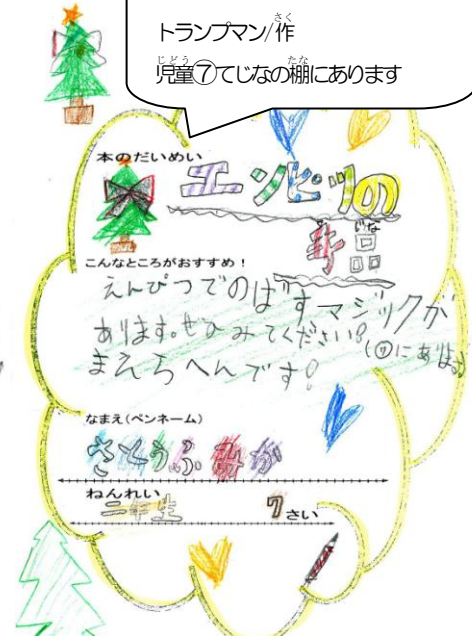 さく
トランプマン/作
じどう たな
児童⑦てじなの棚にあります
本のだいめい
エンピツの
じな
手品
こんなところがおすすめ！
えんぴつでのばすマジックが
あります。ぜひみてください!
(⑦にあります)
まえらへんです!
なまえ(ペンネーム)
さとうふみか
ねんれい
二年生 7さい